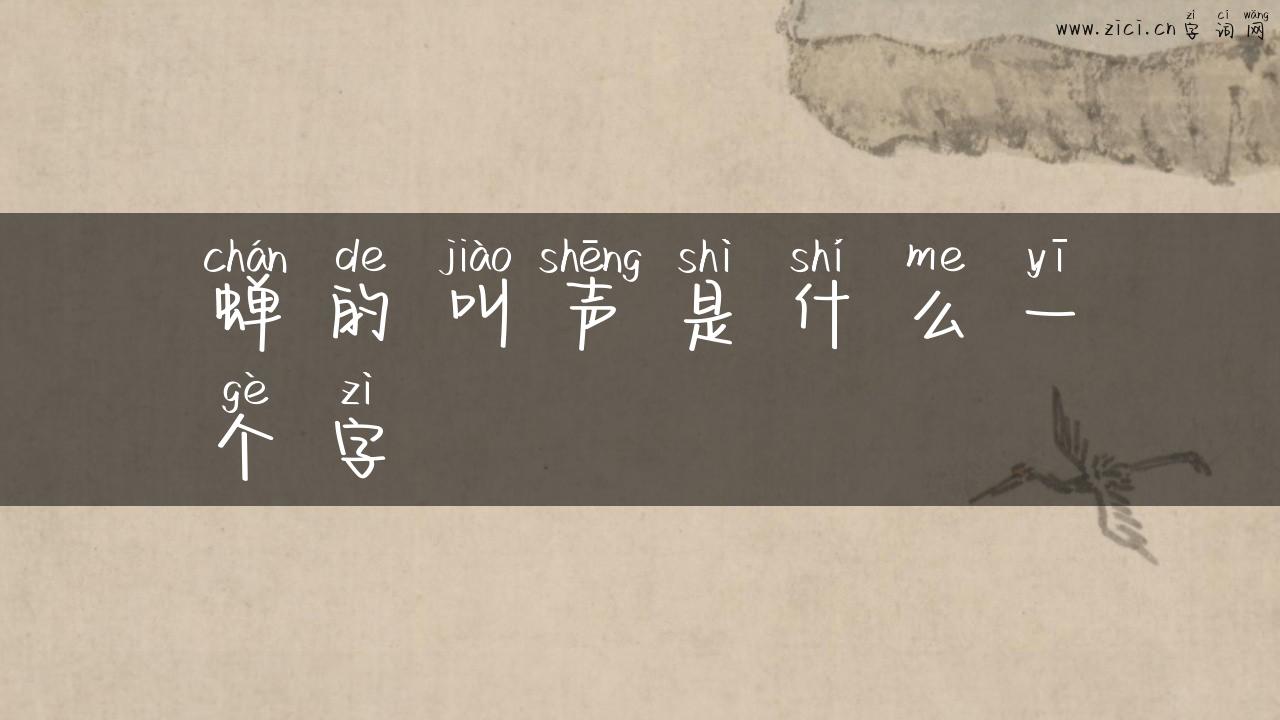 zì cí wǎng
www.zici.cn 字 词 网
chán de jiào shēng shì shí me yī
蝉 的 叫 声 是 什 么 一
gè zì
个 字